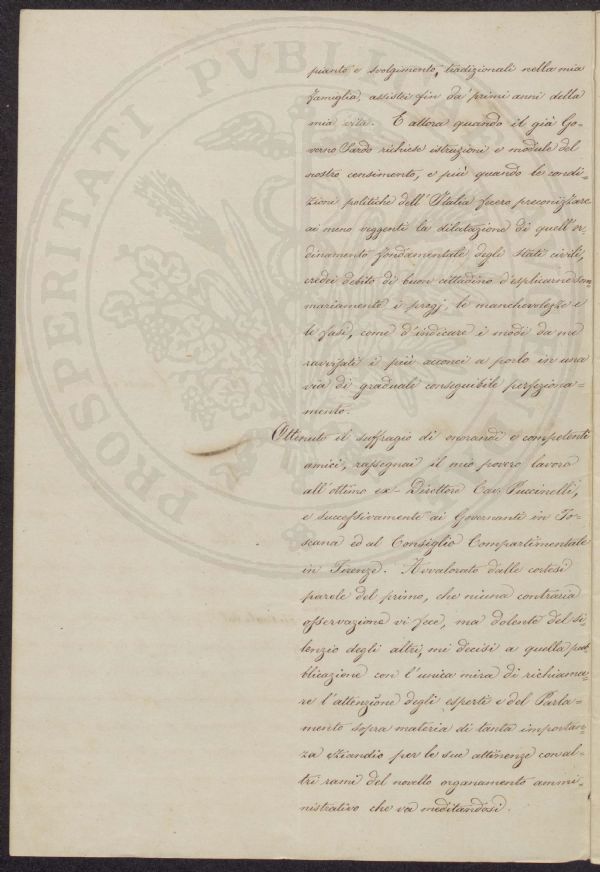 PROSPERITATI PVBLI
pianto e svolgimento, tradizionali nella mia
famiglia, assistei fin da' primi anni della
mia vita. E allora quando il già Go-
verno Sardo richiese istruzioni e module del
nostro censimento, e più quando le condi-
zioni politiche dell'Italia fecero preconizzare
ai meno veggenti la dilatazione di quell'or-
dinamento fondamentale degli Stati civili,
credei debito di buon cittadino d'esplicarne som-
mariamente i pregj, le manchevolezze e
le fasi, come d'indicare i modi da me
ravvisati i più acconci a porlo in una
via di graduale conseguibile perfeziona=
mento.
Ottenuto il suffragio di onorandi e competenti
amici, rassegnai il mio povero lavoro
all'ottimo ex-Direttore Cav. Puccinelli,
e successivamente ai Governanti in To-
scana ed al Consiglio Compartimentale
in Firenze. Avvalorato dalle cortesi
parole del primo, che niuna contraria
osservazione vi fece, ma dolente del si-
lenzio degli altri, mi decisi a quella pub
blicazione con l'unica mira di richiama-
re l'attenzione degli esperti e del Parla-
mento sopra materia di tanta importan-
za eziandio per le sue attinenze con al-
tri rami del novello organamento ammi-
nistrativo che va meditandosi.